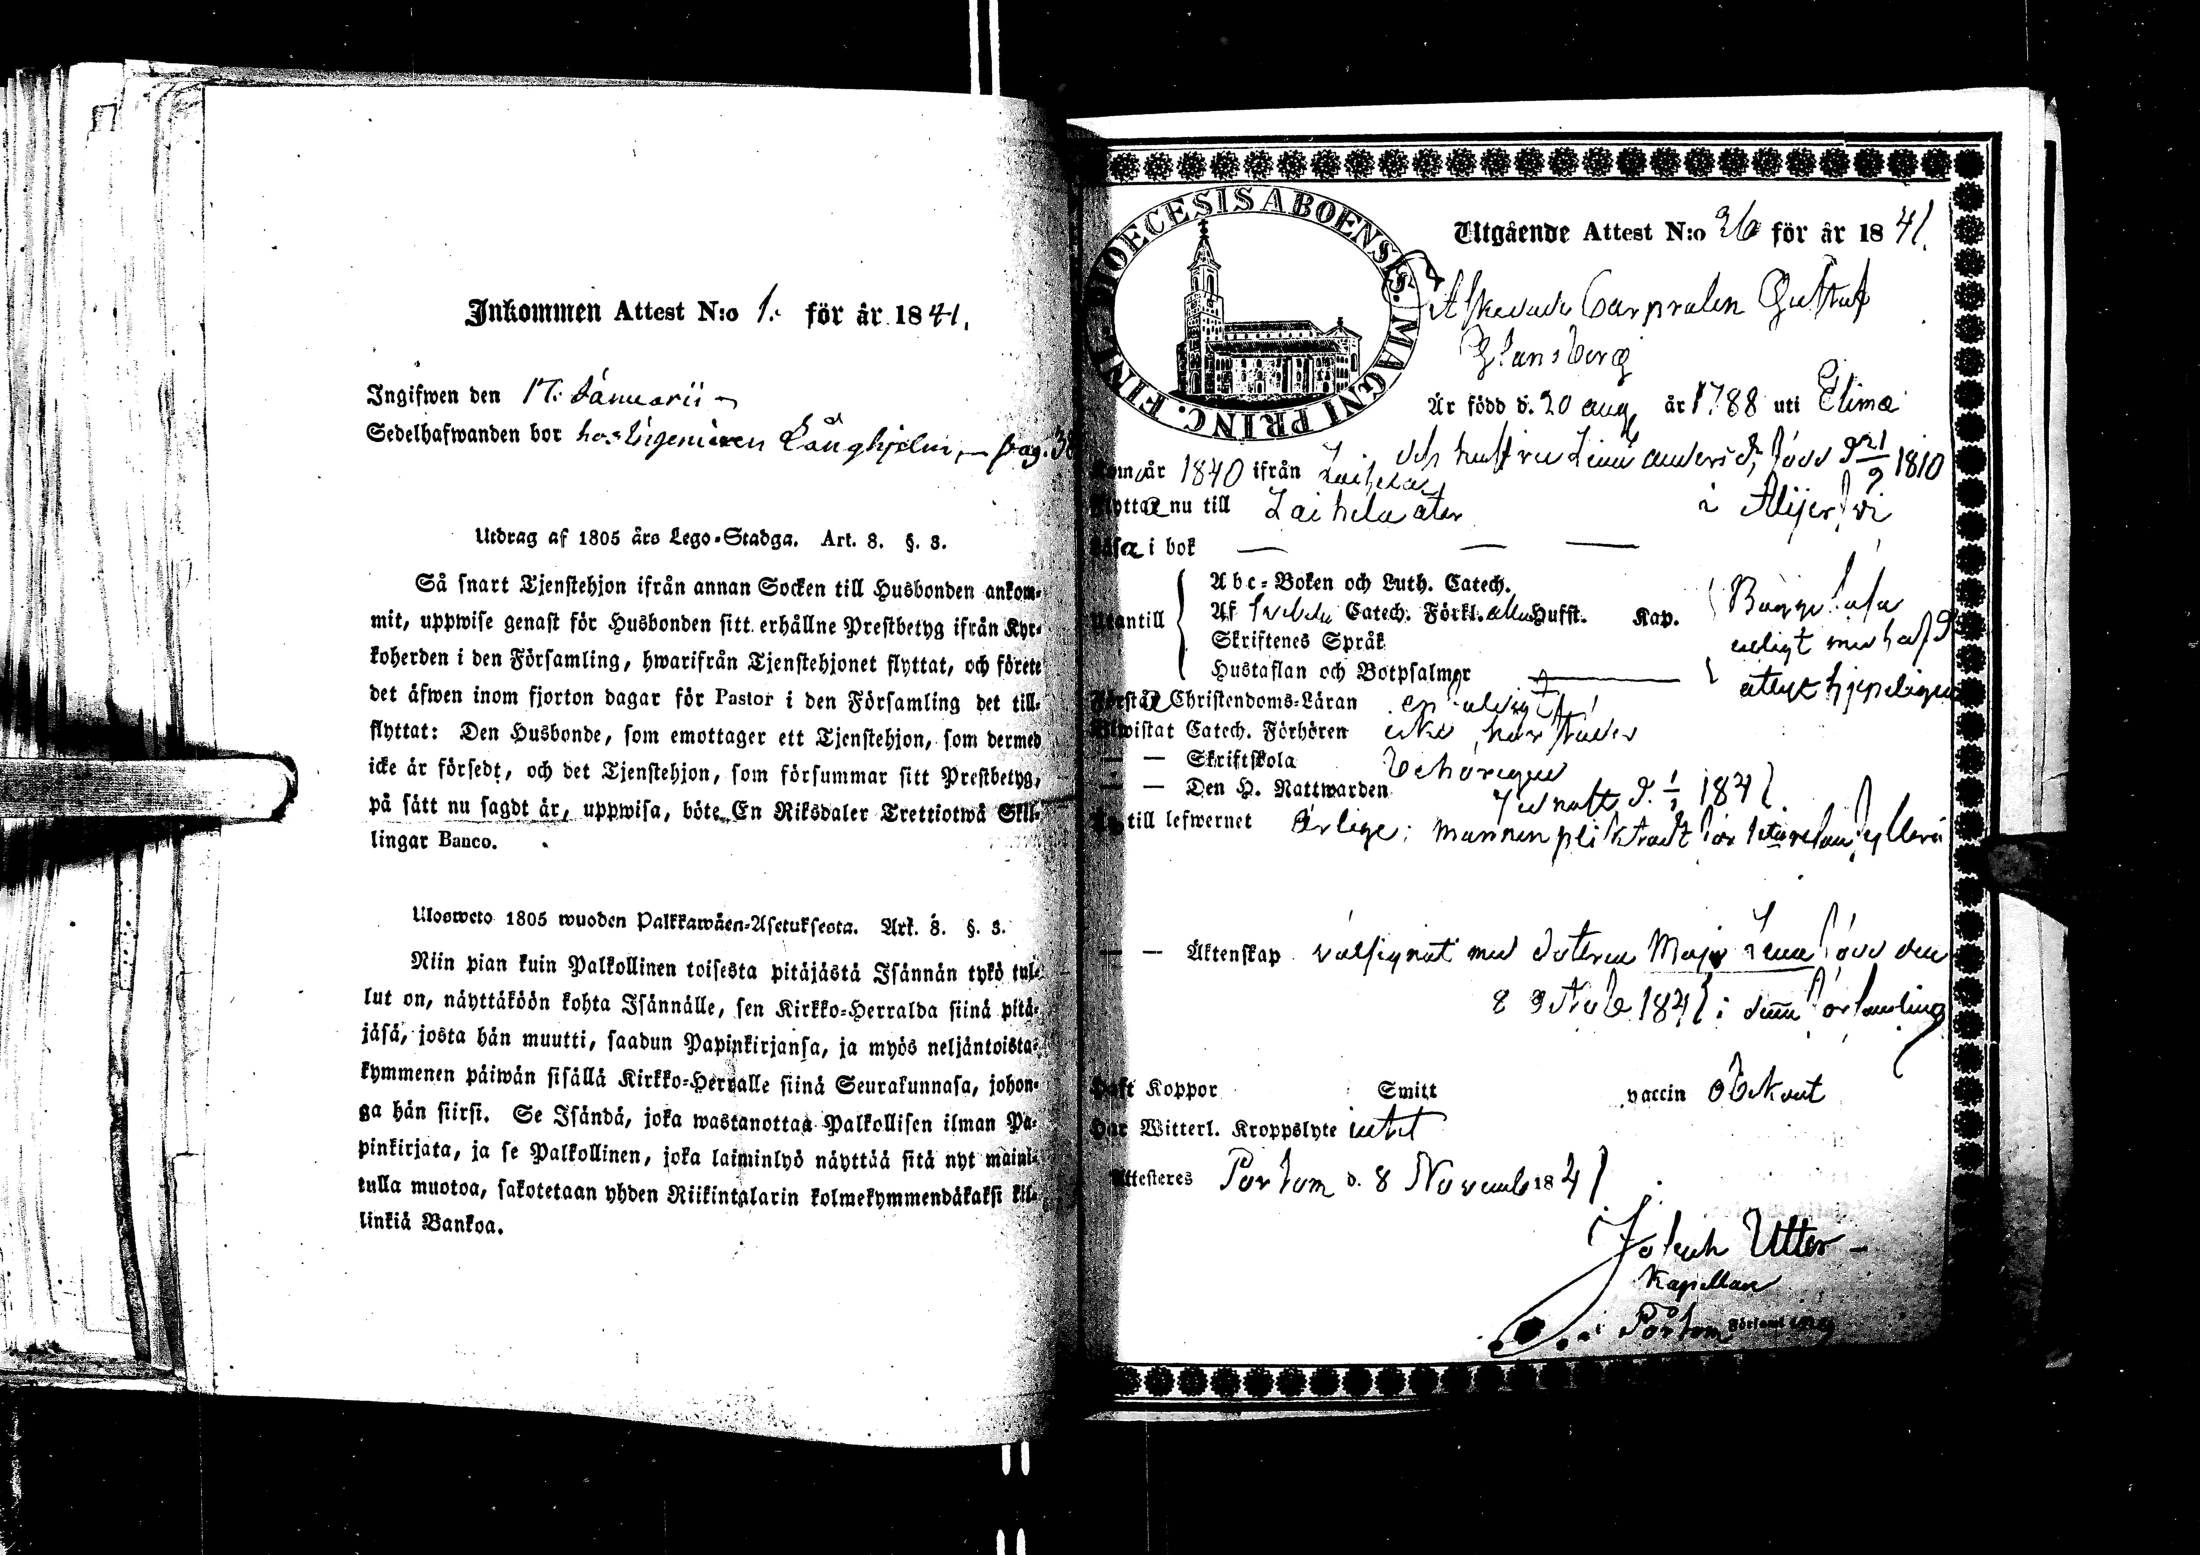 Inkommen Attest N:o 1. för år 1841.
Ingifwen den 17. Januarii
Sedelhafwanden bor hos Ingenieuren Långhjelm, pag. 38
Utdrag af 1805 års Lego-Stadga. Art. 8. §. 3.
Så snart Tjenstehjon ifrån annan Socken till Husbonden ankom-
mit, uppwise genast för Husbonden sitt erhållne Prestbetyg ifrån Kyr-
koherden i den Församling, hwarifrån Tjenstehjonet flyttat, och förete
det äfwen inom fjorton dagar för Pastor i den Församling det till-
flyttat: Den Husbonde, som emottager ett Tjenstehjon, som dermed
icke är försedt, och det Tjenstehjon, som försummar sitt Prestbetyg,
på sätt nu sagdt är, uppwisa, böte En Riksdaler Trettiotwå Skil-
lingar Banco.
Ulosweto 1805 wuoden Palkkawäen-Asetuksesta. Art. 8. §. 3.
Niin pian kuin Palkollinen toisesta pitäjästä Isännän tykö tul-
lut on, näyttäköön kohta Isännälle, sen Kirkko-Herralda siinä pitä-
jäsä, josta hän muutti, saadun Papinkirjansa, ja myös neljäntoista-
kymmenen päiwän sisällä Kirkko-Herralle siinä Seurakunnasa, johon-
ga hän siirsi. Se Isändä, joka wastanottaa Palkollisen ilman Pa-
pinkirjata, ja se Palkollinen, joka laiminlyö näyttää sitä nyt maini-
tulla muotoa, sakotetaan yhden Riikintalarin kolmekymmendäkaksi kil-
linkiä Bankoa.
DIOECESIS ABOENSIS. MAGNI PRINC. FINL
Utgående Attest N:o 36 för år 1841.
Afskedade Corpralen Gustaf
Glansberg
Är född d. 20 aug. år 1788 uti Elimä
och hustru Lena Anders dr, född d 21/9 1810
Kom år 1840 ifrån Laihela
i Alijerfwi
Flyttar nu till Laihela åter
Läsa i bok
Abc-Boken och Luth. Catech.
Utantill Af Catech. Förkl. Hufst. Kap. Bägge läsa
Skriftenes Språk
Hustaflan och Botpsalmer
Förstår Christendoms-Läran
Bewistat Catech. Förhören
— — Skriftskola behörigen
— — Den H. Nattwarden d. 1/1 1841.
Är till lefwernet Ärlige; mannen pliktadt för
— — Äktenskap välsignat med dottren Maja Lena född den
8 1841 i denna församling
Haft Koppor Smitt vaccin obekant
Har Witterl. Kroppslyte intet
Attesteres Pörtom d. 8 November 1841
Joseph Utter
Kapellan
i Pörtom Församling